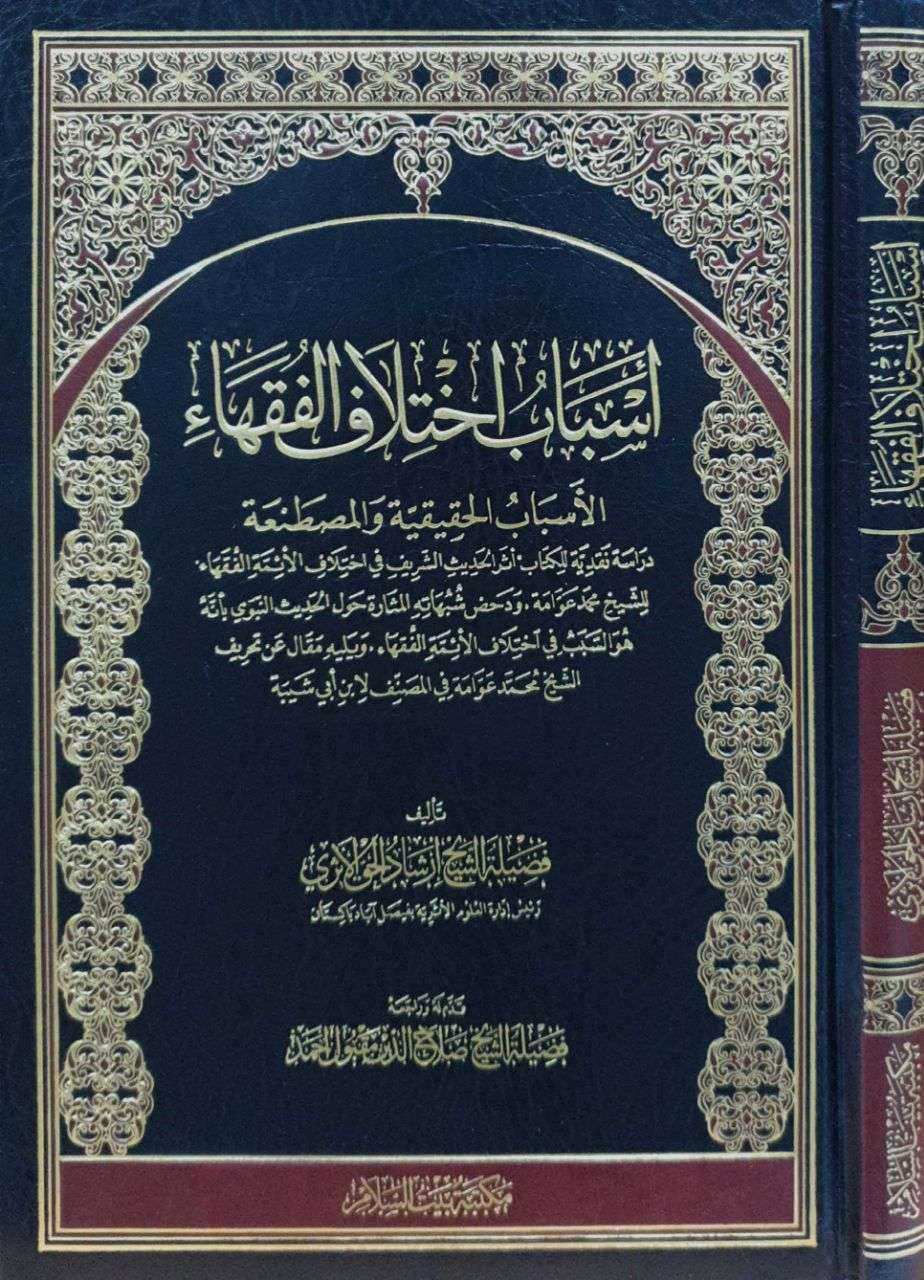 أَسْبَابُ اخْتِلَافِ الفُقَهَاءِ
الأَسبَابُ الحَقِيقِيَّة وَالمُصطَنعَة
دِرَاسَة نَقدِيَّة لِكِتَاب: أثَر الحَدِيثِ الشَّرِيفِ فِي اختِلَافِ الأئِمَّةِ الفُقَهَاء.
لِلشَّيخ محمد عَوَّامَة. وَدَحض شُبُهَاتِهِ المُثَارَة حَولَ الحَديثِ النَّبَوي بِأنَّهُ
هُوَ السَّبَبُ فِي اختِلَافِ الأئِمَّةِ الفُقَهَاء. وَيَلِيهِ مَقَال عَن تَحرِيف
الشَّيخ مُحمَّد عَوَّامَة فِي المصَنَّف لِابنِ أَبي شَيبَة
تَأليف
فَضِيلَة الشَّيخ إِرشَادُ الحَق الأَثَرِي
رَئيسُ إدَارَة العُلُوم الأثَرِيَّة بفَيصَل آبَاد بَاكِستَان
قَدَّمَ لَهُ وَرَاجَعَهُ
فَضِيلَة الشَّيخ صَلَاحُ الدِّين مَقبُول أَحمَد
مَكتَبَة بَيت السَّلَام
أسباب اختلاف الفقهاء
فضيلة الشيخ إرشاد الحق الأثري
مكتبة بيت السلام